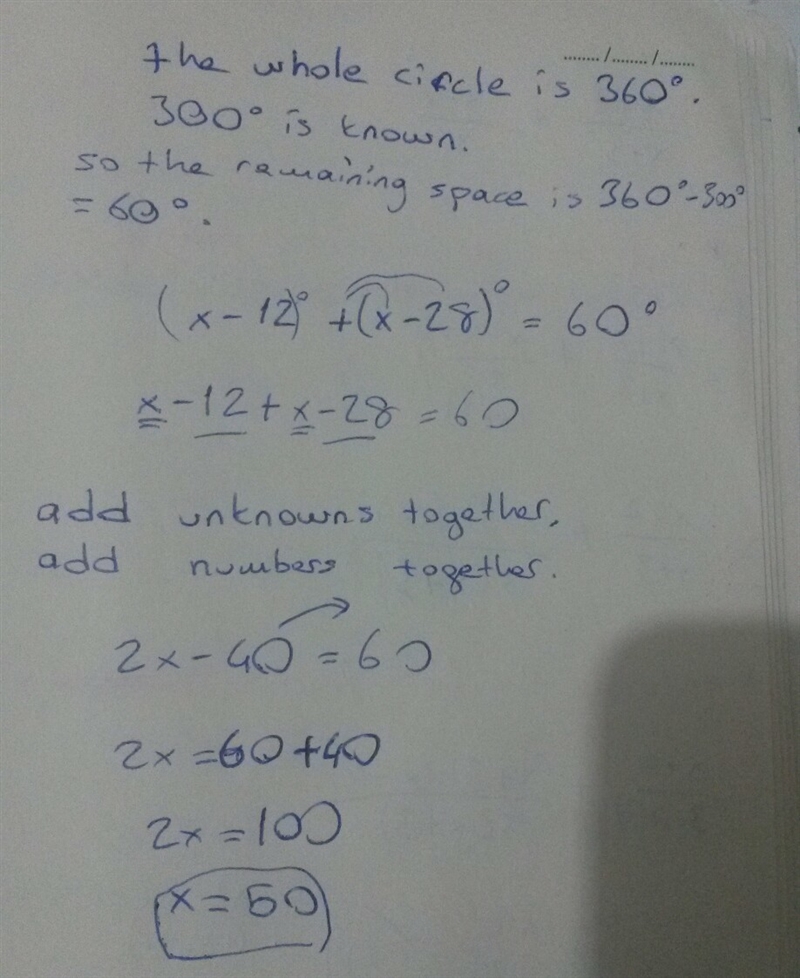 ......../......../........
the whole circle is 360°.
300° is known.
so the remaining space is 360°-300°
= 60°.
(x-12)° +(x-28)° = 60°
x-12+x-28 = 60
add unknowns together,
add numbers together.
2x-40 = 60
2x = 60+40
2x = 100
x = 50